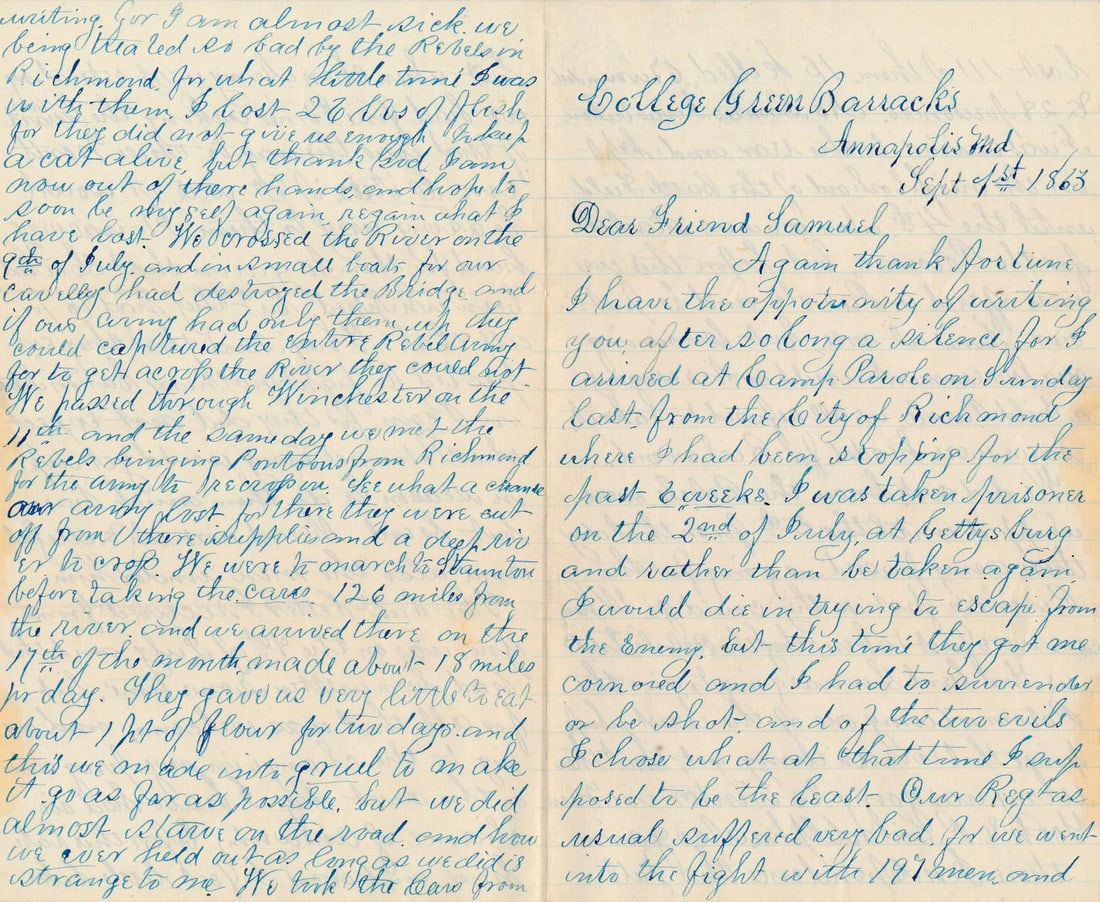 writing. for I am almost sick. we
being treated so bad by the Rebels in
Richmond, for what little time I was
with them. I lost 26 lbs of flesh,
for they did not give us enough to keep
a cat alive, but thank God I am
now out of there hands, and hope to
soon be myself again, regain what I
have lost. We crossed the River on the
9th of July. and in small boats for our
cavelly had destroyed the Bridge and
if our army had only them up they
could captured the entire Rebel army
for to get across the River they could not
We passed through Winchester on the
11th and the same day we met the
Rebels bringing Pontoons from Richmond
for the army to recross on. See what a chance
our army lost for there they were cut
off from there supplies and a deep riv
er to cross We were to march to Staunton
before taking the cars 126 miles from
the river. and we arrived there on the
17th of the month, made about 18 miles
pr day. They gave us very little to eat
about 1 pt of flour for two days. and
this we made into gruel to make
it go as far as possible. but we did
almost starve on the road. and how
we ever held out as long as we did is
strange to me. We took the Cars from
College Green Barracks
Annapolis Md
Sept 1st 1863
Dear Friend Samuel
Again thank fortune
I have the oppotunity of writing
you, after so long a silence, for I
arrived at Camp Parole on Sunday
last. from the City of Richmond
where I had been stopping for the
past 6 weeks. I was taken prisoner
on the 2nd of July, at Gettysburg
and rather than be taken again,
I would die in trying to escape from
the Enemy, but this time they got me
cornored and I had to surrender
or be shot. and of the two evils
I chose what at that time I sup
posed to be the least. Our Regt as
usual suffered very bad. for we went
into the fight with 197 men, and